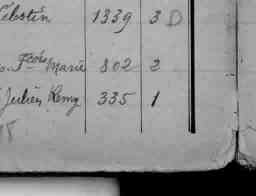 Célestin 1339 3 D
Fcois Marie 802 2
Julien Remy 335 1